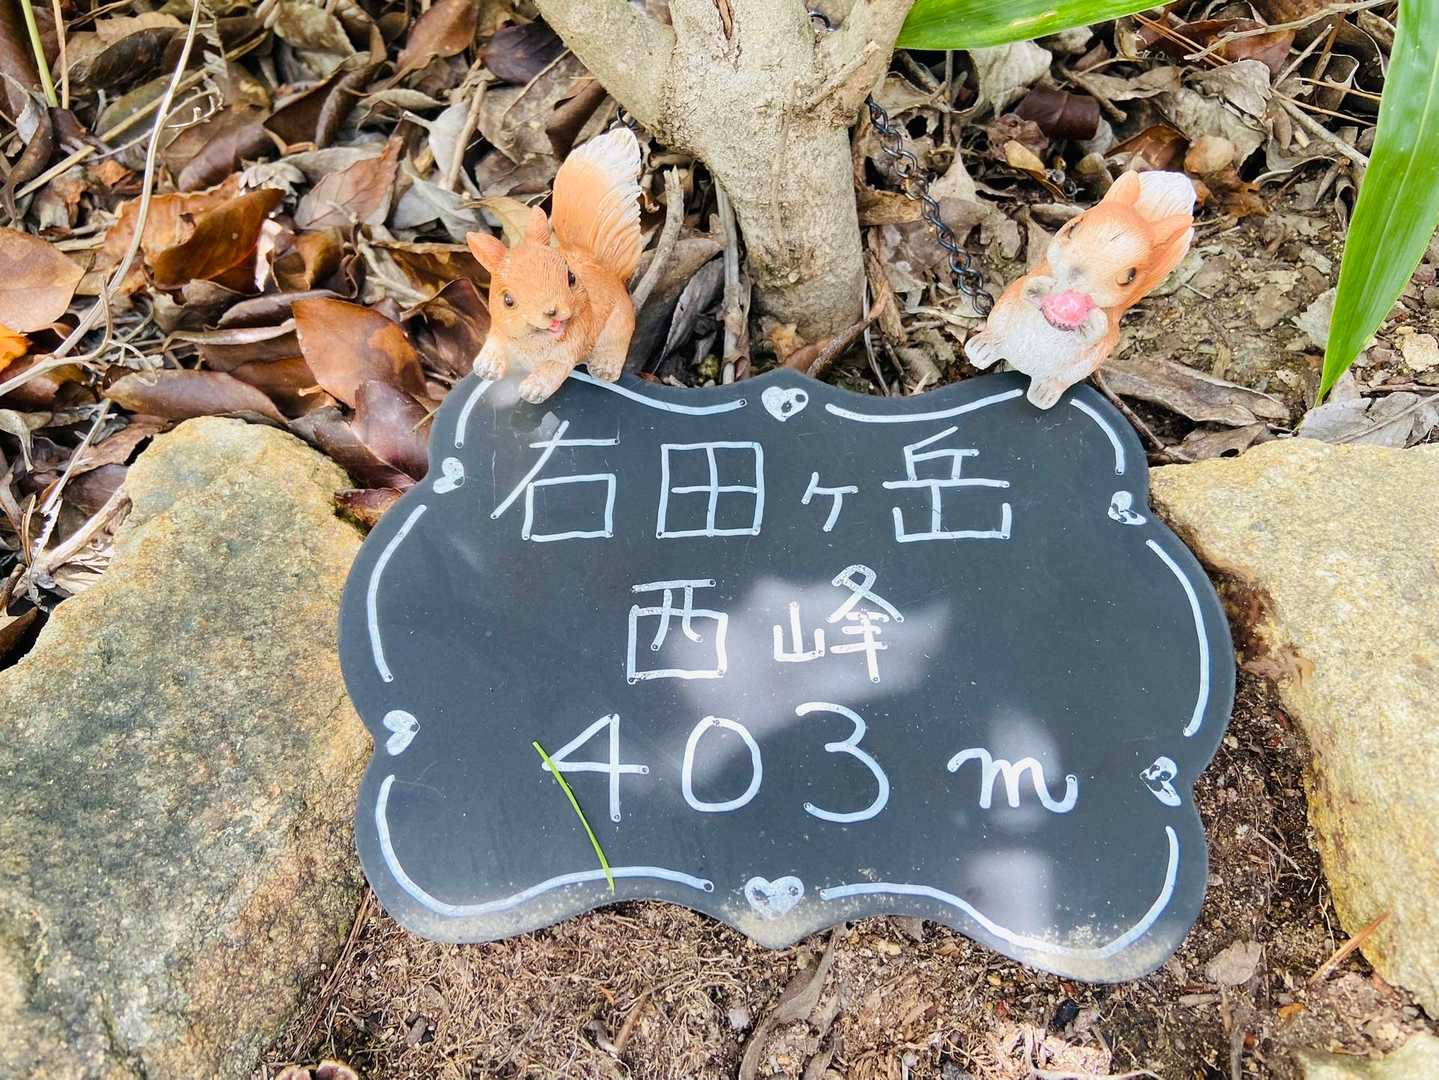 右田ヶ岳
西峰
403m